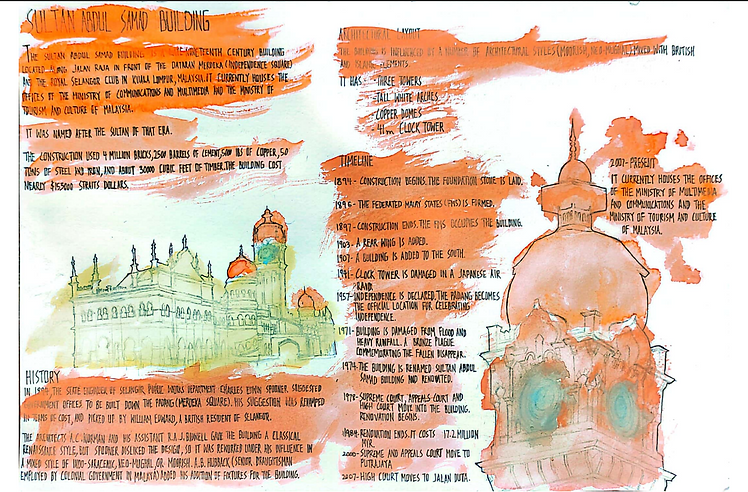 SULTAN ABDUL SAMAD BUILDING
THE SULTAN ABDUL SAMAD BUILDING NINETEENTH CENTURY BUILDING
LOCATED ALONG JALAN RAJA IN FRONT OF THE DATARAN MERDEKA (INDEPENDENCE SQUARE)
AND THE ROYAL SELANGOR CLUB IN KUALA LUMPUR, MALAYSIA. IT CURRENTLY HOUSES THE
OFFICES OF THE MINISTRY OF COMMUNICATIONS AND MULTIMEDIA AND THE MINISTRY OF
TOURISM AND CULTURE OF MALAYSIA.
IT WAS NAMED AFTER THE SULTAN OF THAT ERA.
THE CONSTRUCTION USED 4 MILLION BRICKS, 2500 BARRELS OF CEMENT, 500 LBS OF COPPER, 50
TONS OF STEEL AND IRON, AND ABOUT 30000 CUBIC FEET OF TIMBER. THE BUILDING COST
NEARLY $152000 STRAITS DOLLARS.
HISTORY
IN THE STATE ENGINEER OF SELANGOR PUBLIC WORKS DEPARTMENT CHARLES EDWIN SPOONER SUGGESTED
GOVERNMENT OFFICES TO BE BUILT DOWN THE PADANG (MERDEKA SQUARE). HIS SUGGESTION WAS REVAMPED
IN TERMS OF COST, AND PICKED UP BY WILLIAM EDWARD, A BRITISH RESIDENT OF SELANGOR.
THE ARCHITECTS A.C. NORMAN AND HIS ASSISTANT R.A.J. BIDWELL GAVE THE BUILDING A CLASSICAL
RENAISSANCE STYLE, BUT SPOONER DISLIKED THE DESIGN, SO IT WAS REWORKED UNDER HIS INFLUENCE IN
A MIXED STYLE OF INDO-SARACENIC, NEO-MUGHAL, OR MOORISH. A.B. HUBBACK (SENIOR DRAUGHTSMAN
EMPLOYED BY COLONIAL GOVERNMENT IN MALAYA) ADDED HIS ADDITION OF FEATURES FOR THE BUILDING.
ARCHITECTURAL LAYOUT
THE BUILDING IS INFLUENCED BY A NUMBER OF ARCHITECTURAL STYLES (MOORISH, NEO-MUGHAL) MIXED WITH BRITISH
AND ISLAMIC ELEMENTS.
IT HAS - THREE TOWERS
- TALL WHITE ARCHES
- COPPER DOMES
- 41m CLOCK TOWER
TIMELINE
1894 - CONSTRUCTION BEGINS. THE FOUNDATION STONE IS LAID.
1896 - THE FEDERATED MALAY STATES (FMS) IS FORMED.
1897 - CONSTRUCTION ENDS. THE FMS OCCUPIES THE BUILDING.
1903 - A REAR WING IS ADDED.
1907 - A BUILDING IS ADDED TO THE SOUTH.
1941 - CLOCK TOWER IS DAMAGED IN A JAPANESE AIR
RAID.
1957 - INDEPENDENCE IS DECLARED. THE PADANG BECOMES
THE OFFICIAL LOCATION FOR CELEBRATING
INDEPENDENCE.
1971 - BUILDING IS DAMAGED FROM FLOOD AND
HEAVY RAINFALL. A BRONZE PLAQUE
COMMEMORATING THE FALLEN DISAPPEAR.
1974 - THE BUILDING IS RENAMED SULTAN ABDUL
SAMAD BUILDING AND RENOVATED.
1978 - SUPREME COURT, APPEALS COURT AND
HIGH COURT MOVE INTO THE BUILDING.
RENOVATION BEGINS.
1984 - RENOVATION ENDS. IT COSTS 17.2 MILLION
MYR.
2000 - SUPREME AND APPEALS COURT MOVE TO
PUTRAJAYA
2007 - HIGH COURT MOVES TO JALAN DUTA.
2007 - PRESENT
IT CURRENTLY HOUSES THE OFFICES
OF THE MINISTRY OF MULTIMEDIA
AND COMMUNICATIONS AND THE
MINISTRY OF TOURISM AND CULTURE
OF MALAYSIA.